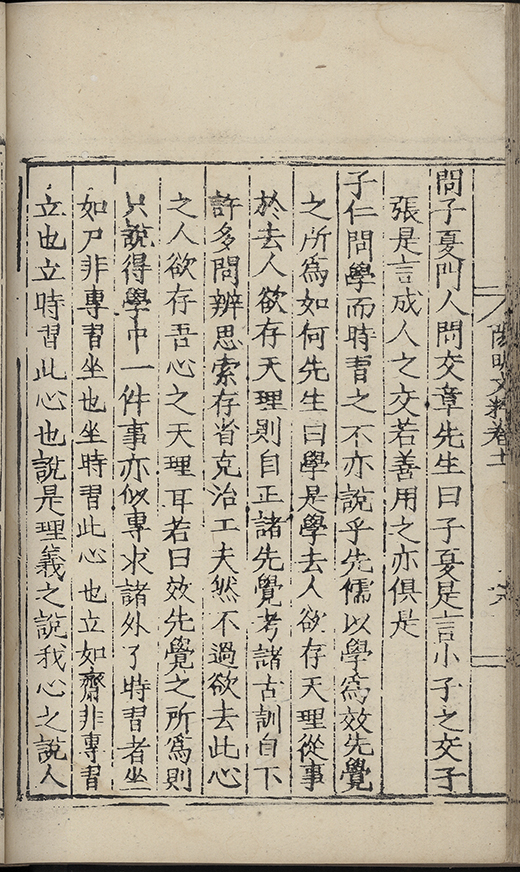 陽明文粹卷十一
六
問子夏門人問交章先生曰子夏是言小子之交子
張是言成人之交若善用之亦俱是
子仁問學而時習之不亦說乎先儒以學爲效先覺
之所爲如何先生曰學是學去人欲存天理從事
於去人欲存天理則自正諸先覺考諸古訓自下
許多問辨思索存省克治工夫然不過欲去此心
之人欲存吾心之天理耳若曰效先覺之所爲則
只說得學中一件事亦似專求諸外了時習者坐
如尸非專習坐也坐時習此心也立如齋非專習
立也立時習此心也說是理義之說我心之說人